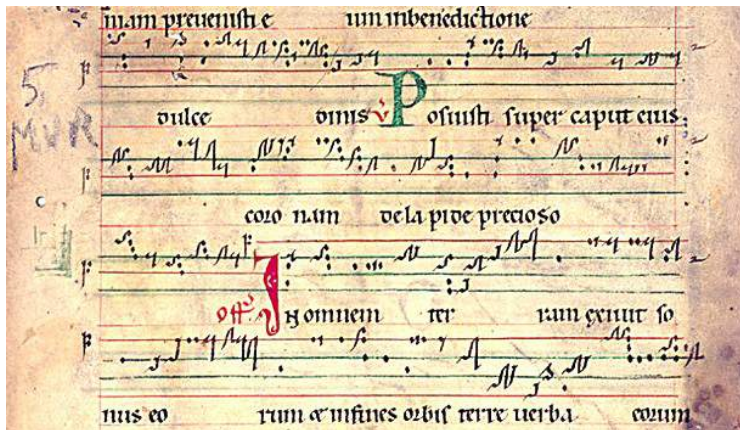 nam prevenisti e um inbenedictione
dulce dinis ℣ Posuisti super caput eius
coro nam dela pide precioso
off In omnem ter ram exiuit so
nus eo rum & infines orbis terre uerba eorum
5
MVR